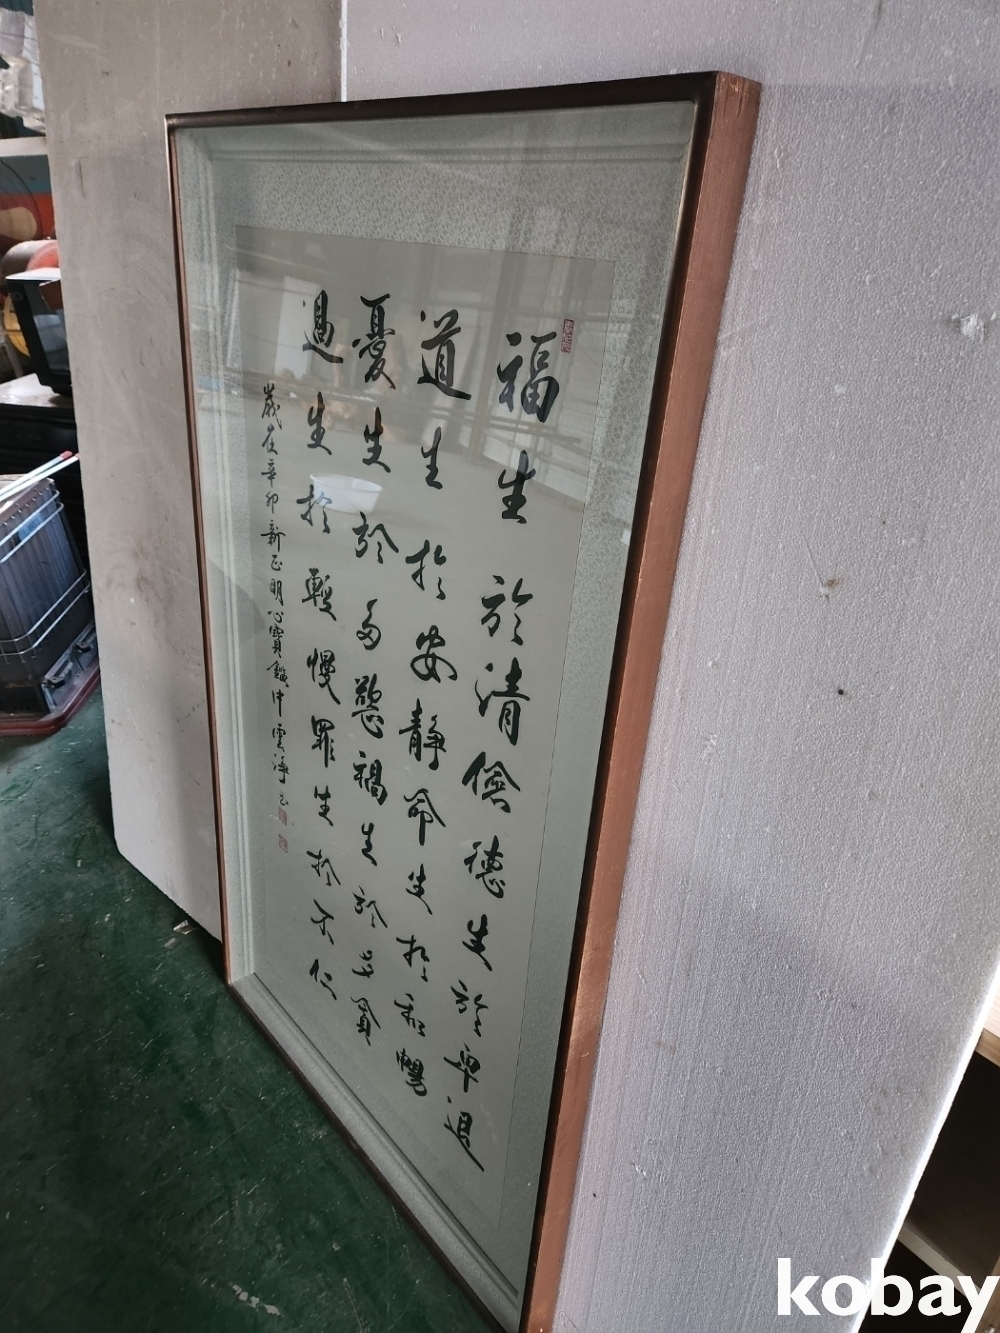 福生於清儉德生於卑退
道生於安靜命生於和暢
憂生於多慾禍生於多貪
過生於輕慢罪生於不仁
歲在辛卯新正明心寶鑑中雲淨
kobay